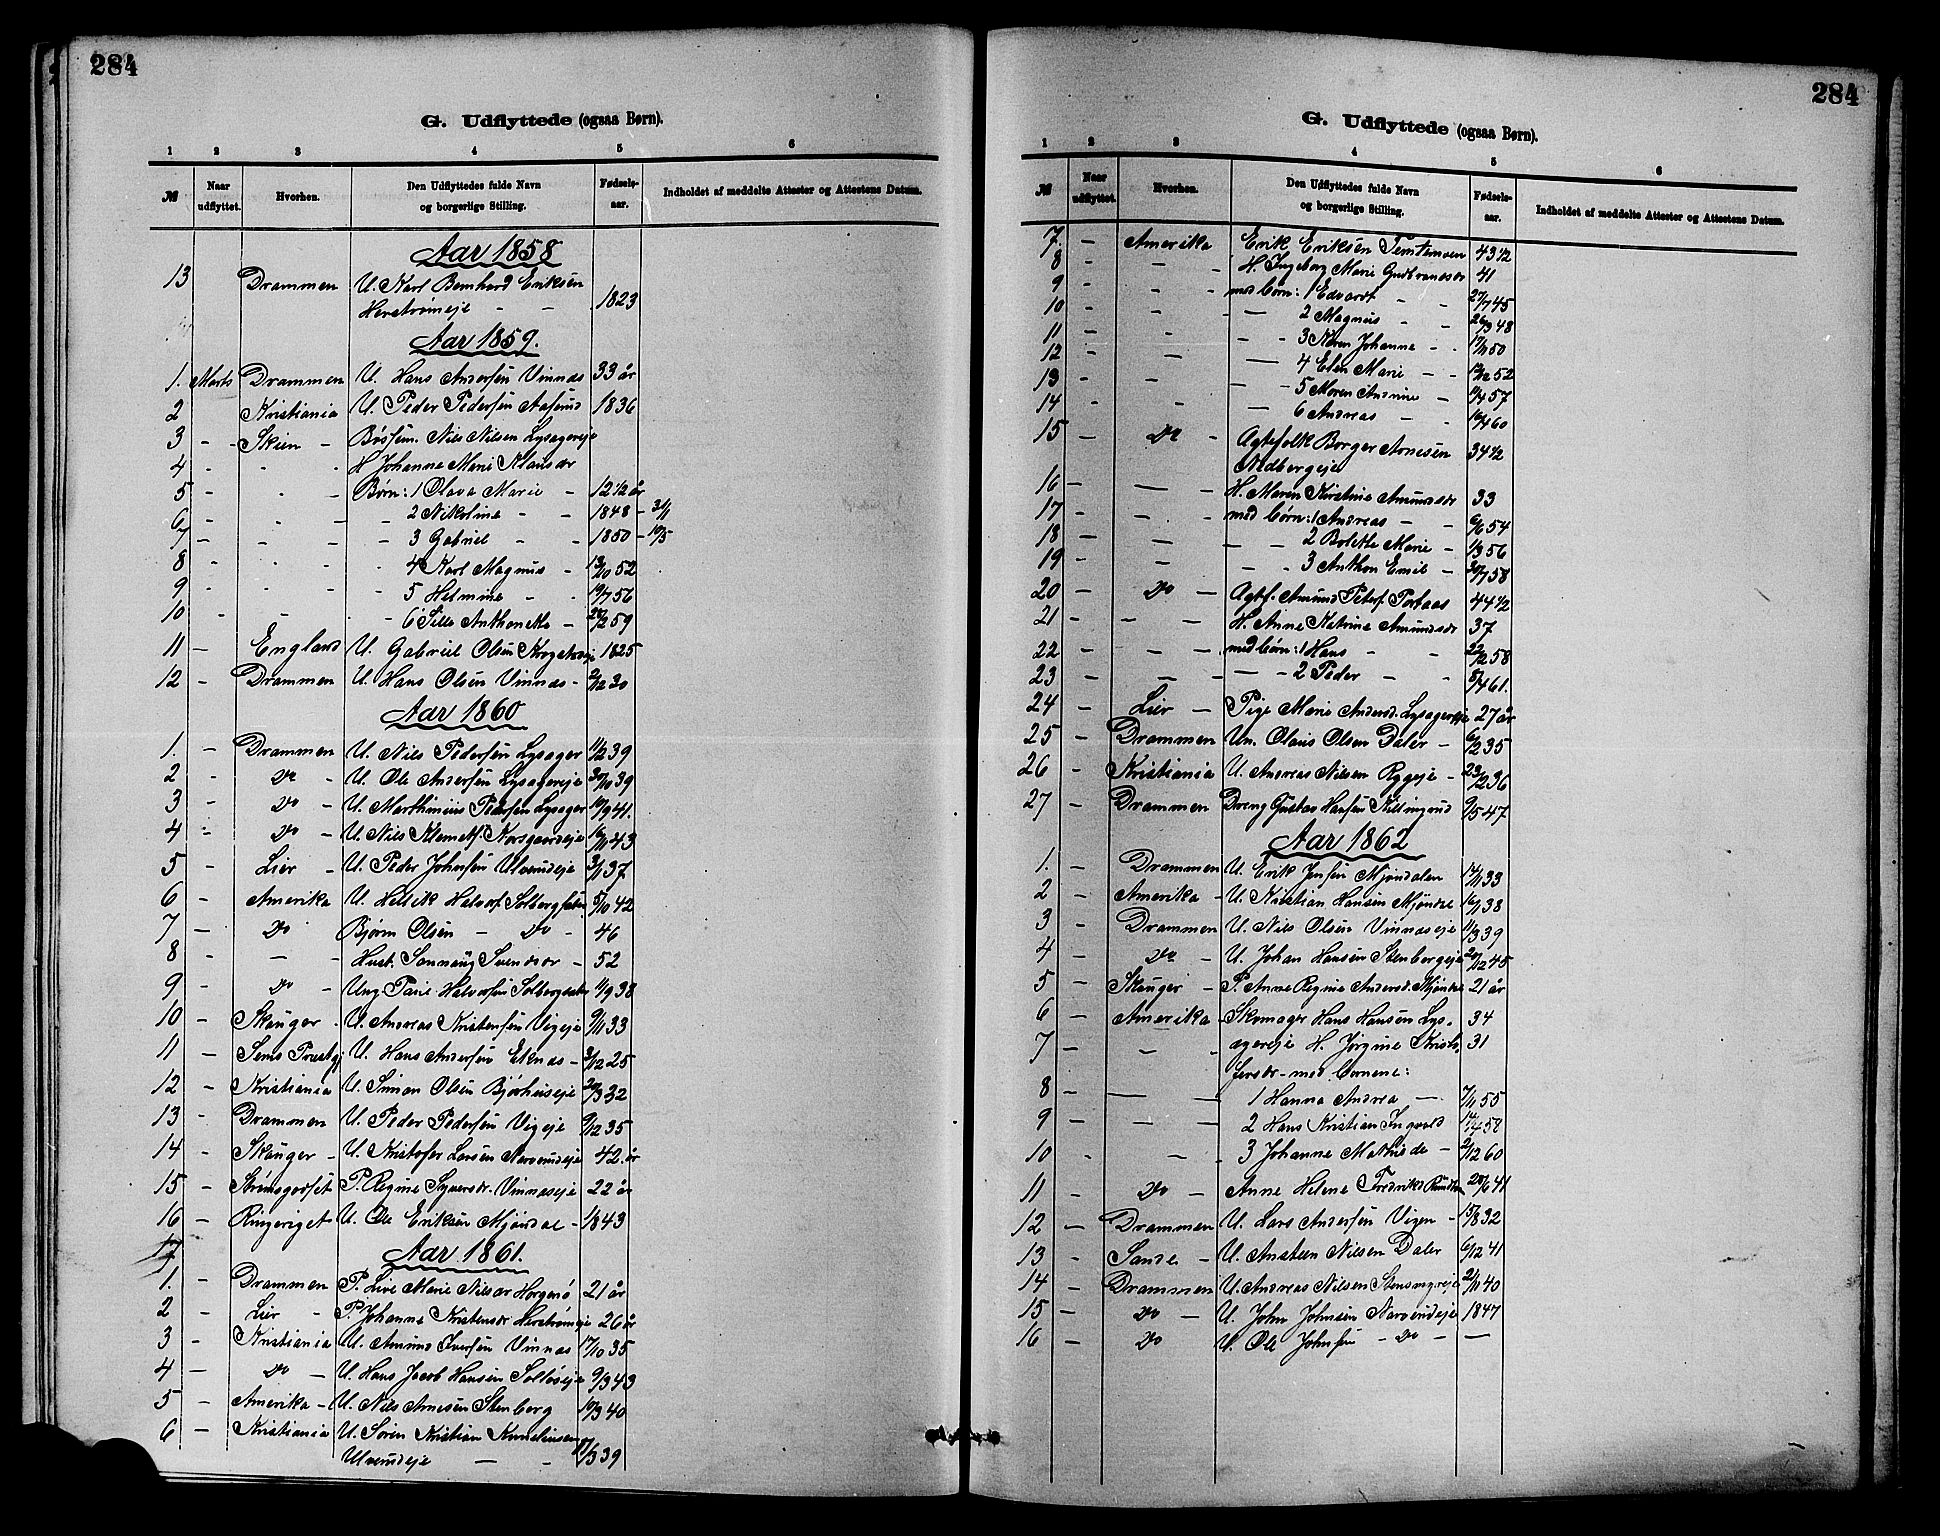 284
G. Udflyttede (ogsaa Børn).
1 2 3 4 5 6
№ Naar udflyttet. Hvorhen. Den Udflyttedes fulde Navn og borgerlige Stilling. Fødsels-aar. Indholdet af meddelte Attester og Attestens Datum.
Aar 1858
13 Drammen U. Karl Bernhard Eriksen
Herstrømeje - - 1823
Aar 1859.
1. Marts Drammen U. Hans Andersen Vinnas 33 år
2 Kristiania U. Peder Pedersen Aaserud 1836
3 - - Skien - Nils Nilsen Lysagereje
4 - - - H. Johanne Marie Klausdr
5 - - - Børn: 1 Olava Marie - 12 1/2 år
6 - - - 2 Nikoline - - 1848 - 31/1
7 - - - 3 Gabriel - - 1850 - 10/5
8 - - - 4 Karl Magnus - 13/10 52
9 - - - 5 Helmine - - 19/7 56
10 - - - 6 Anthonette - 59
11 - England U. Gabriel Olsen 1825
12 - Drammen U. Hans Olsen Vinnas - 2/12 30
Aar 1860
1. - Drammen U. Nils Pedersen Lysager 11/2 39
2 - Do - U. Ole Andersen Lysagereje 30/10 39
3 - Do - U. Marthinius Pedersen Lysager 10/9 41.
4 - Do - U. Nils Klemets. Korsgaardeje 16/11 43
5 - Lier - U. Peder Johnsen Ulverudeje 3/1 37
6 - Amerika U. Hellik Halvors. 5/10 42
7 - Do Bjørn Olsen - Do - 46
8 - - Hust. Sonnaug Svendsdr - 52
9 - Do - Ung. 11/9 38
10 - Skauger - U. Andreas Kristensen Vigeje 9/11 33
11 - U. Hans Andersen Eknas - 3/12 25
12 - Kristiania U. Simon Olsen Bjørhuseje 20/3 32
13 - Drammen U. Peder Pedersen Vigeje 9/12 35
14 - Skauger - U. Kristofer Larsen 42 år
15 - Strømsgodset P. Regine Syversdr. Vinnaseje 22 år
16 - Ringeriget U. Ole Eriksen Mjøndal - 1843
17
Aar 1861.
1. - Drammen P. Live Marie Nilsdr Horgenø 21 år
2 - Lier - P. Johanne Kristensdr Herstrømeje 26 år
3 - Kristiania U. Amund Iversen Vinnas 17/10 35
4 - Do - U. Hans Jacob Hansen 9/3 43
5 - Amerika - U. Nils Arnesen Stenberg 10/3 40
6 - Kristiania U. Søren Kristian Kornelinsen
Ulverudeje - - 17/3 39
284
G. Udflyttede (ogsaa Børn).
1 2 3 4 5 6
№ Naar udflyttet. Hvorhen. Den Udflyttedes fulde Navn og borgerlige Stilling. Fødsels-aar. Indholdet af meddelte Attester og Attestens Datum.
7. - Amerika Erik Eriksen 43 1/2
8 - - - H. Ingeborg Marie Gudbrandsdr 41
9 - - - med børn: 1 Edvardt - - 27/7 45
10 - - - - 2 Magnus - - 26/3 48
11 - - - - 3 Karen Johanne - - 17/11 50
12 - - - 4 Elen Marie - - 12/12 52
13 - - - - 5 Maren Andrine - 57
14 - - - 6 Andreas - - 16/4 60
15 - Do - Ægtefolk Borger Arnesen 34 1/2
Nedbergeje
16 - - H. Maren Kristine Amundsdr 33
17 - - - med børn: 1 Andreas - - 6/6 54
18 - - - - 2 Bolette Marie - 1/3 56
19 - - - - 3 Anthon Emil - 20/7 58
20 - Do - Ægtf. Amund Peters. 44 1/2
21 - - - H. Anne Katrine Amundsdr 37
22 - - med børn: 1 Hans - - 22/2 58
23 - - - - - 2 Peder - - 5/4 61.
24 - Lier - Pige Marie Andersd. Lysagereje 27 år
25 - Drammen Un. Olaus Olsen Daler - 6/2 35
26 - Kristiania U. Andreas Nilsen Ryggeje - 23/2 36
27 - Drammen Dreng Gustav Hansen Killingrud 9/5 47
Aar 1862
1. - Drammen U. Erik Jensen Mjøndalen 14/11 33
2 - Amerika - U. Kristian Hansen Mjøndal 16/1 38
3 - Drammen U. Nils Olsen Vinnaseje 11/3 39
4 - Do - U. Johan Hansen Stenbergeje 20/12 45
5 - Skauger - P. Anne Regine Andersd. Mjøndal 21 år
6 - Amerika - Skomager Hans Hansen Lys- 34
7 - - - agereje H. Jørgine Kristo- 31
fersdr - med børnene:
8 - - - 1 Hanna Andrea - 7/11 55
9 - - - 2 Hans Kristian Ingvald 14/4 58
10 - - 3 Johanne Mathilde - 2/12 60
11 - Do - Anne Helene Fredriks 20/6 41
12 - Drammen U. Lars Andersen Vigen - 15/8 32
13 - Sande - U. Ansteen Nilsen Daler 6/12 41
14 - Drammen U. Andreas Nilsen 21/11 40
15 - Do - U. John Johnsen 1847
16 - Do U. Ole Johnsen - Do - -